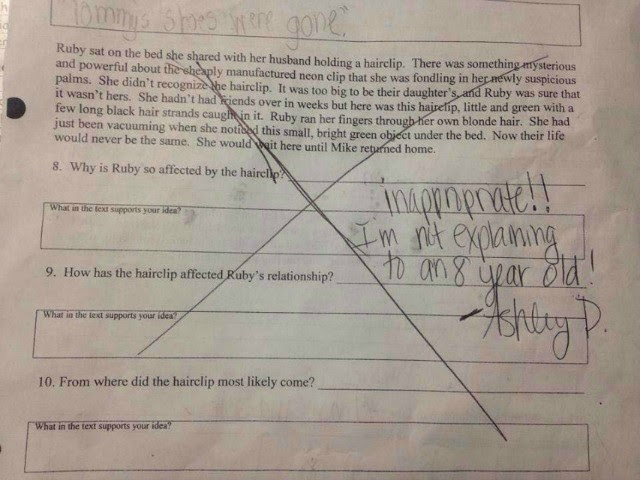 Tommy's shoes were gone."
Ruby sat on the bed she shared with her husband holding a hairclip. There was something mysterious
and powerful about the cheaply manufactured neon clip that she was fondling in her newly suspicious
palms. She didn't recognize the hairclip. It was too big to be their daughter's, and Ruby was sure that
it wasn't hers. She hadn't had friends over in weeks but here was this hairclip, little and green with a
few long black hair strands caught in it. Ruby ran her fingers through her own blonde hair. She had
just been vacuuming when she noticed this small, bright green object under the bed. Now their life
would never be the same. She would wait here until Mike returned home.
8. Why is Ruby so affected by the hairclip?
inappropriate!!
What in the text supports your idea?
I'm not explaining
9. How has the hairclip affected Ruby's relationship?
to an 8 year old!
What in the text supports your idea?
-Ashley D.
10. From where did the hairclip most likely come?
What in the text supports your idea?